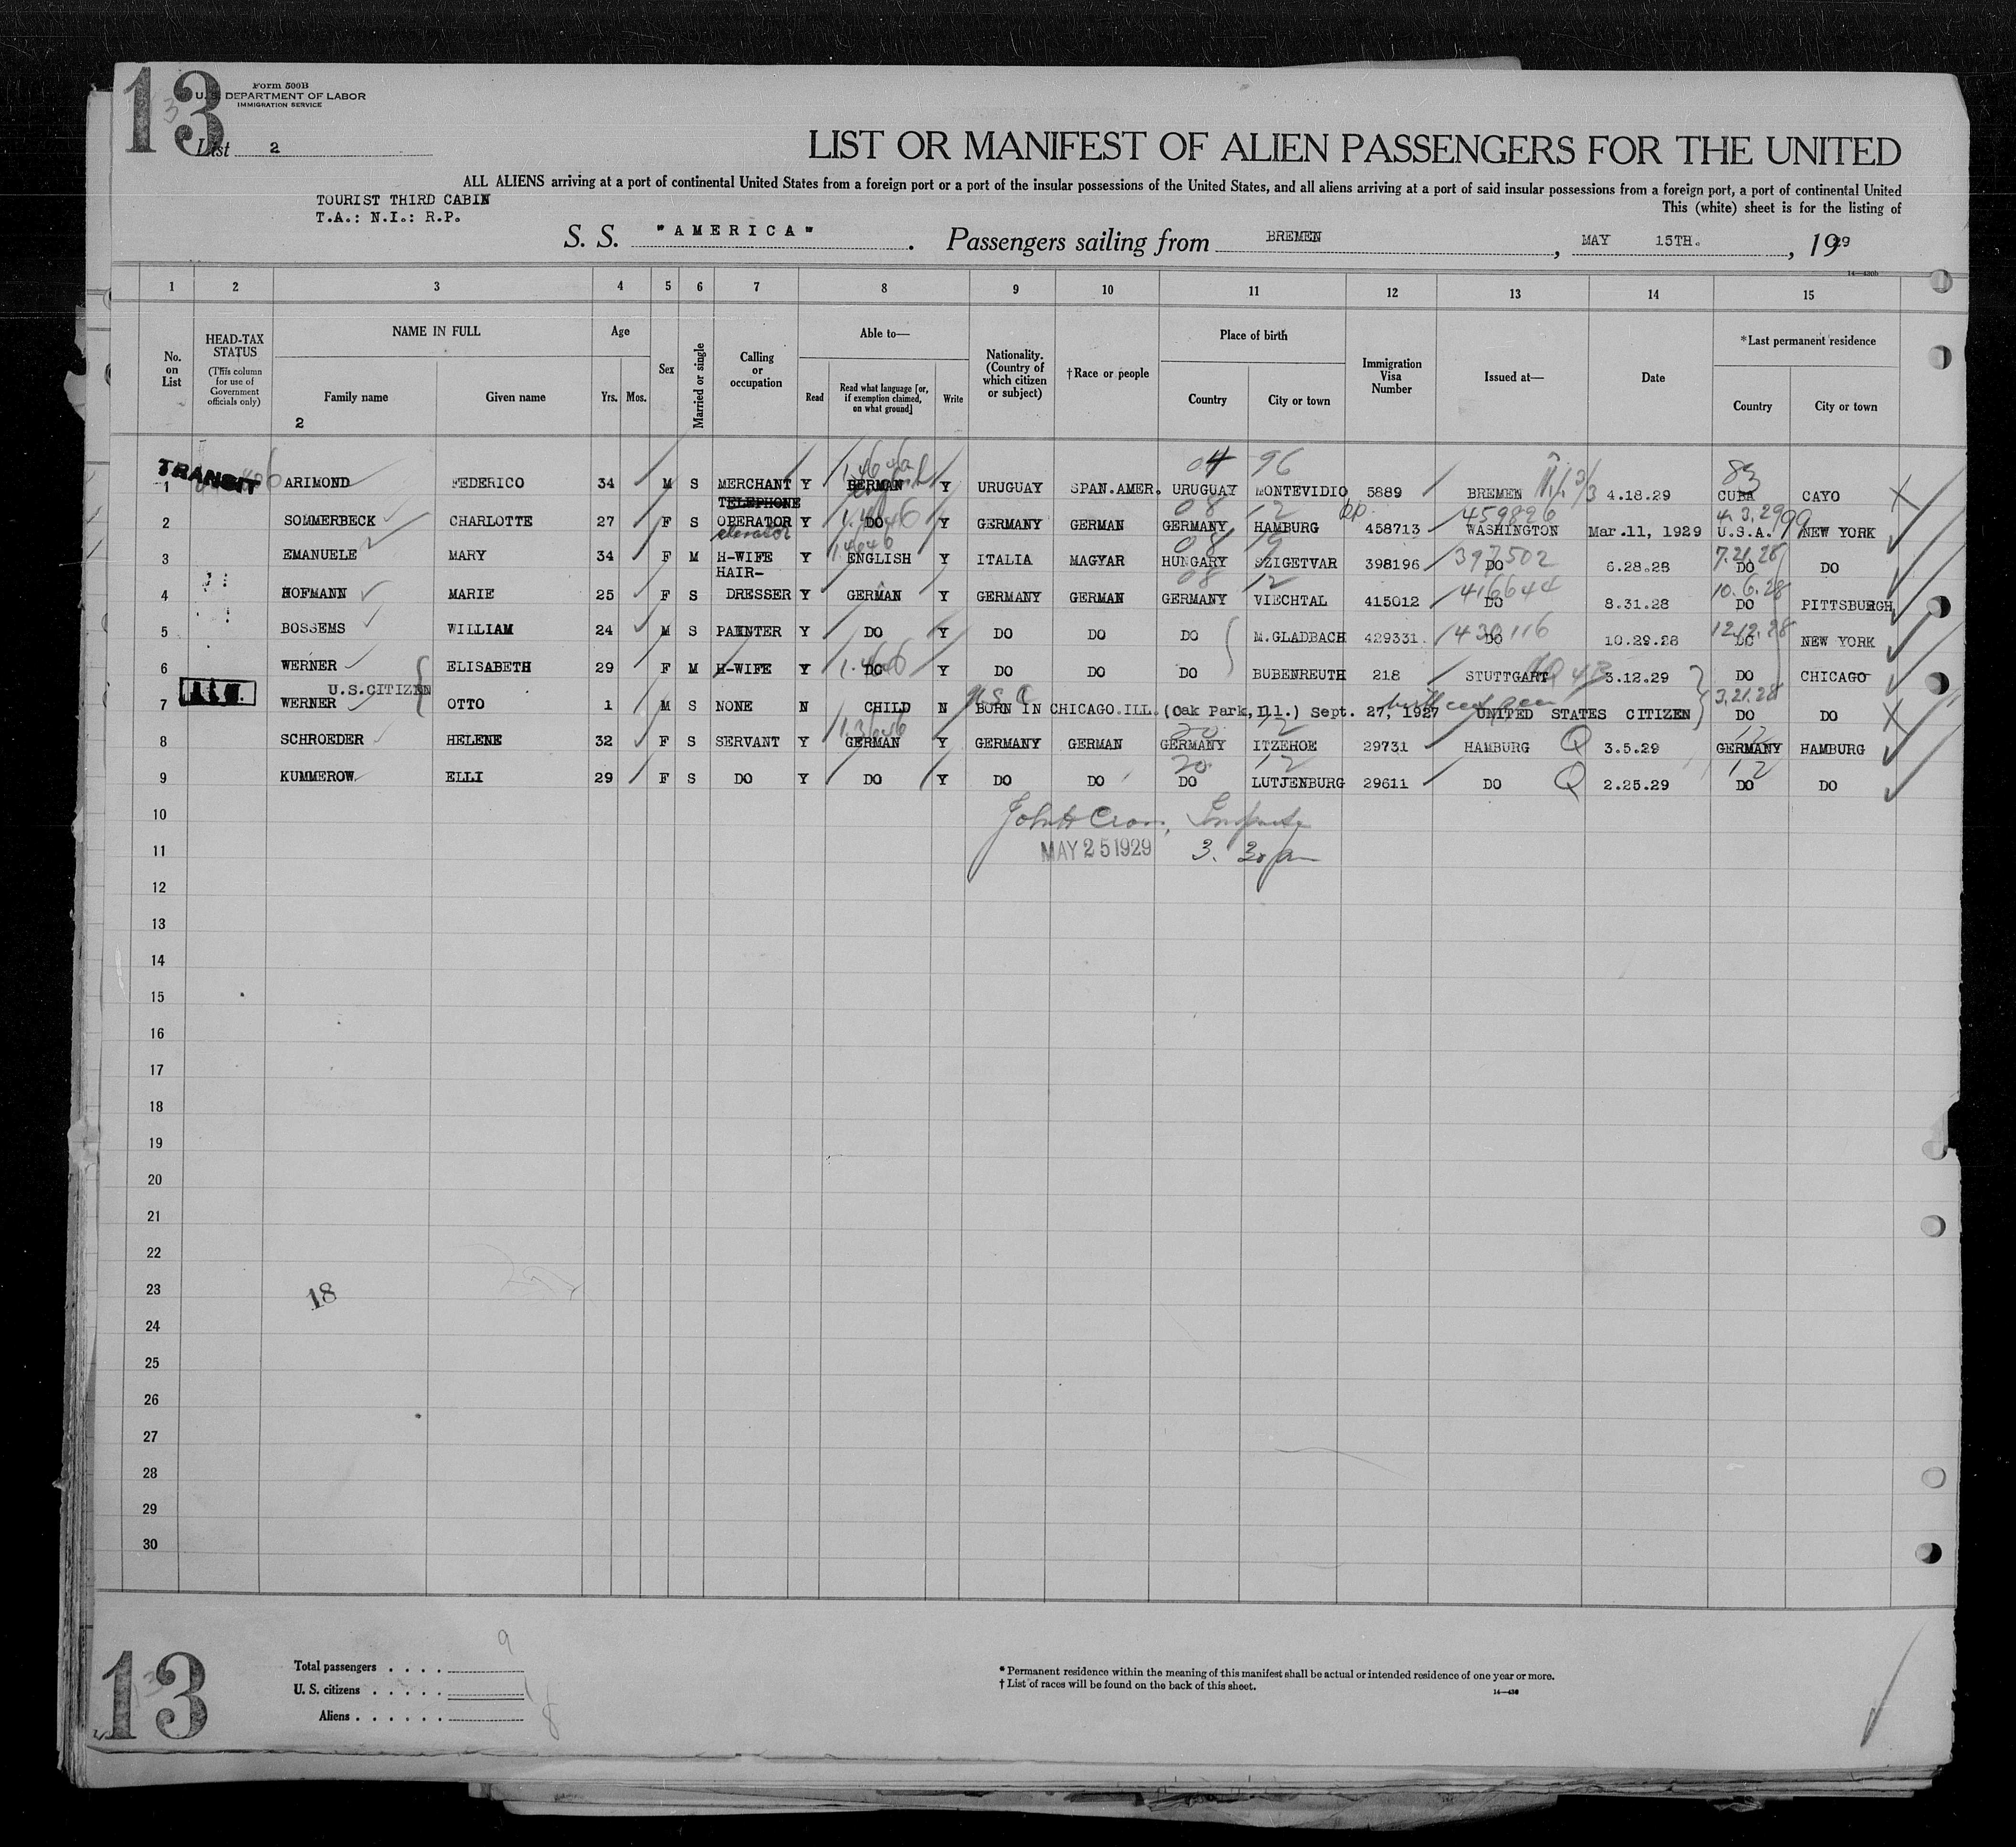 13
Form 500B
U. S. DEPARTMENT OF LABOR
IMMIGRATION SERVICE
List 2
LIST OR MANIFEST OF ALIEN PASSENGERS FOR THE UNITED
ALL ALIENS arriving at a port of continental United States from a foreign port or a port of the insular possessions of the United States, and all aliens arriving at a port of said insular possessions from a foreign port, a port of continental United
This (white) sheet is for the listing of
TOURIST THIRD CABIN
T.A.: N.I.: R.P.
S. S. "AMERICA". Passengers sailing from BREMEN, MAY 15TH., 1929
14—430b
1 2 3 4 5 6 7 8 9 10 11 12 13 14 15
No. on List
HEAD-TAX STATUS (This column for use of Government officials only)
NAME IN FULL Family name Given name
2
Age Yrs. Mos.
Sex
Married or single
Calling or occupation
Able to— Read Read what language [or, if exemption claimed, on what ground] Write
Nationality. (Country of which citizen or subject)
†Race or people
Place of birth Country City or town
Immigration Visa Number
Issued at—
Date
*Last permanent residence Country City or town
04 96 83
TRANSIT
1 ARIMOND FEDERICO 34 M S MERCHANT Y GERMAN English Y URUGUAY SPAN.AMER. URUGUAY MONTEVIDIO 5889 BREMEN 4.18.29 CUBA CAYO
TELEPHONE 08 12 459826 4.3.29 99
2 SOMMERBECK CHARLOTTE 27 F S OPERATOR Y DO Y GERMANY GERMAN GERMANY HAMBURG 458713 WASHINGTON Mar.11, 1929 U.S.A. NEW YORK
elevator 08 19 397502 7.21.28
3 EMANUELE MARY 34 F M H-WIFE Y ENGLISH Y ITALIA MAGYAR HUNGARY SZIGETVAR 398196 DO 6.28.28 DO DO
HAIR- 08 12 416644 10.6.28
4 HOFMANN MARIE 25 F S DRESSER Y GERMAN Y GERMANY GERMAN GERMANY VIECHTAL 415012 DO 8.31.28 DO PITTSBURGH
430116 12.12.28
5 BOSSEMS WILLIAM 24 M S PAINTER Y DO Y DO DO DO M.GLADBACH 429331 DO 10.29.28 DO NEW YORK
6 WERNER ELISABETH 29 F M H-WIFE Y DO Y DO DO DO BUBENREUTH 218 STUTTGART 3.12.29 DO CHICAGO
U.S.CITIZEN U.S.C 3.21.28
7 WERNER OTTO 1 M S NONE N CHILD N BORN IN CHICAGO.ILL.(Oak Park,Ill.) Sept. 27, 1927 UNITED STATES CITIZEN DO DO
20 12 12
8 SCHROEDER HELENE 32 F S SERVANT Y GERMAN Y GERMANY GERMAN GERMANY ITZEHOE 29731 HAMBURG Q 3.5.29 GERMANY HAMBURG
20 12 12
9 KUMMEROW ELLI 29 F S DO Y DO Y DO DO DO LUTJENBURG 29611 DO Q 2.25.29 DO DO
10
11 MAY 25 1929
12
13
14
15
16
17
18
19
20
21
22
23
18
24
25
26
27
28
29
30
13
Total passengers . . . . 9
U. S. citizens . . . . . 1
Aliens . . . . . . 8
* Permanent residence within the meaning of this manifest shall be actual or intended residence of one year or more.
† List of races will be found on the back of this sheet.
14—430